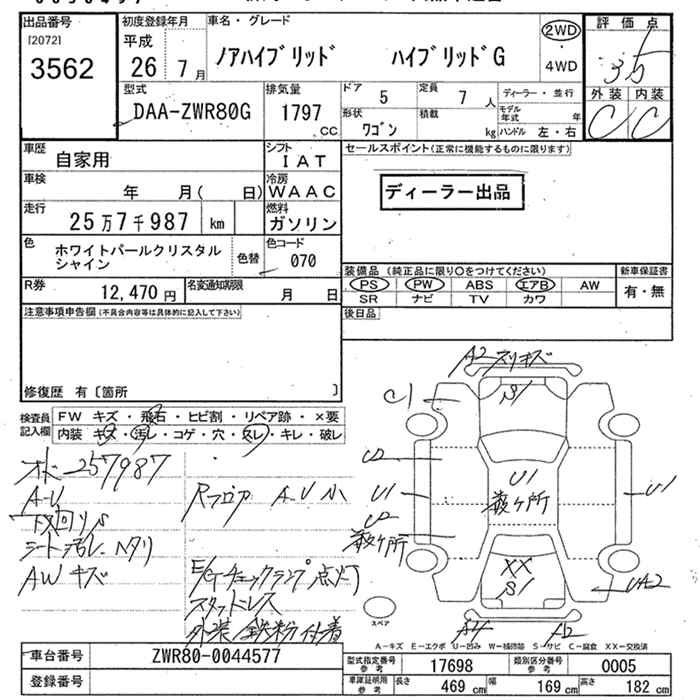 出品番号
[2072]
3562
初度登録年月
平成
26 7月
車名・グレード
ノアハイブリッド ハイブリッドG
2WD
・
4WD
評価点
3.5
外装 内装
C C
型式
DAA-ZWR80G
排気量
1797
cc
ドア 5
定員 7人
形状 ワゴン
積載 kg
ディーラー・並行
モデル年式 年
ハンドル 左・右
車歴 自家用
シフト IAT
車検 年 月( 日)
冷房 WAAC
走行 25万7千987 km
燃料 ガソリン
色 ホワイトパールクリスタル
シャイン
色替
色コード 070
R券 12,470円
名変通知期限 月 日
セールスポイント(正常に機能するものに限ります)
ディーラー出品
装備品(純正品に限り○をつけてください)
PS PW ABS エアB AW
SR ナビ TV カワ
新車保証書
有・無
後日品
注意事項申告欄(不具合内容等は具体的に記入して下さい)
修復歴 有〔箇所 〕
検査員
記入欄
FW キズ・飛石・ヒビ割・リペア跡・×要
内装 キズ・汚レ・コゲ・穴・スレ・キレ・破レ
257987
A-U
下廻りS
シート汚レ、ヘタリ
AWキズ
Rフロア A-U小
E/Gチェックランプ点灯
スタッドレス
外装鉄粉付着
A2 スリキズ
S1
C1
U2
U1
U2
数ヶ所
U1
数ヶ所
U1
XX
S1
UA2
A2
スペア
A-キズ E-エクボ U-凹み W-補修跡 S-サビ C-腐食 XX-交換済
車台番号 ZWR80-0044577
登録番号
型式指定番号
参考
17698
類別区分番号
参考
0005
車庫証明用
参考
長さ 469cm
幅 169cm
高さ 182cm